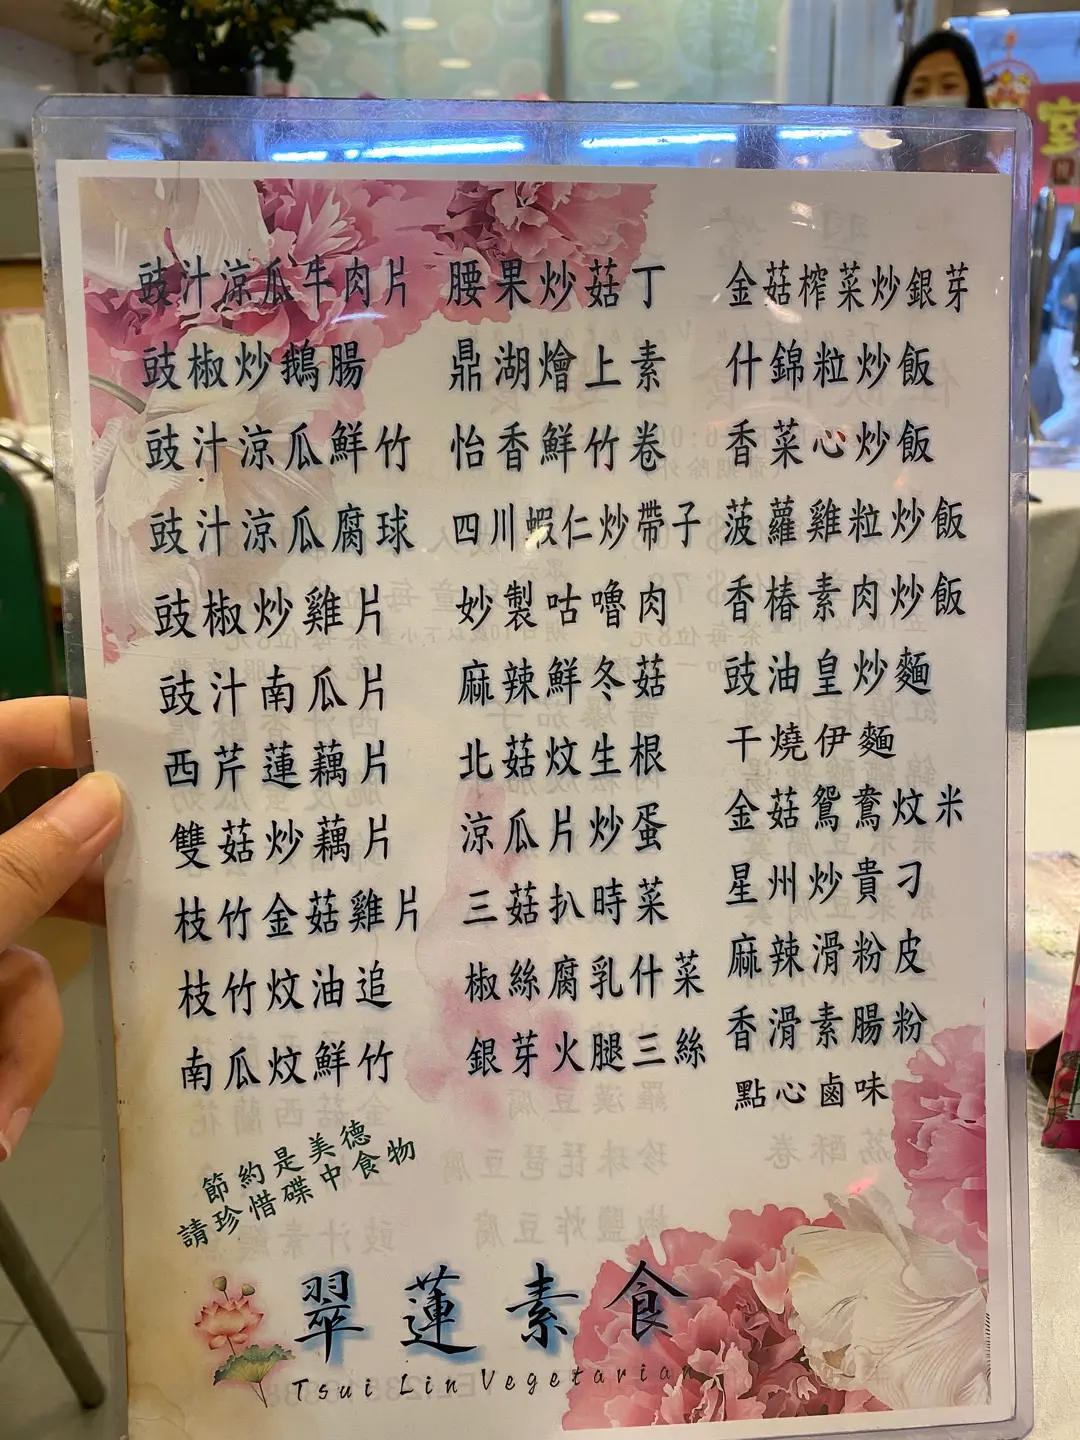 豉汁涼瓜牛肉片
豉椒炒鵝腸
豉汁涼瓜鮮竹
豉汁涼瓜腐球
豉椒炒雞片
豉汁南瓜片
西芹蓮藕片
雙菇炒藕片
枝竹金菇雞片
枝竹炆油追
南瓜炆鮮竹
腰果炒菇丁
鼎湖燴上素
怡香鮮竹卷
四川蝦仁炒帶子
妙製咕嚕肉
麻辣鮮冬菇
北菇炆生根
涼瓜片炒蛋
三菇扒時菜
椒絲腐乳什菜
銀芽火腿三絲
金菇榨菜炒銀芽
什錦粒炒飯
香菜心炒飯
菠蘿雞粒炒飯
香椿素肉炒飯
豉油皇炒麵
干燒伊麵
金菇鴛鴦炆米
星州炒貴刁
麻辣滑粉皮
香滑素腸粉
點心鹵味
節約是美德
請珍惜碟中食物
翠蓮素食
Tsui Lin Vegetarian
室